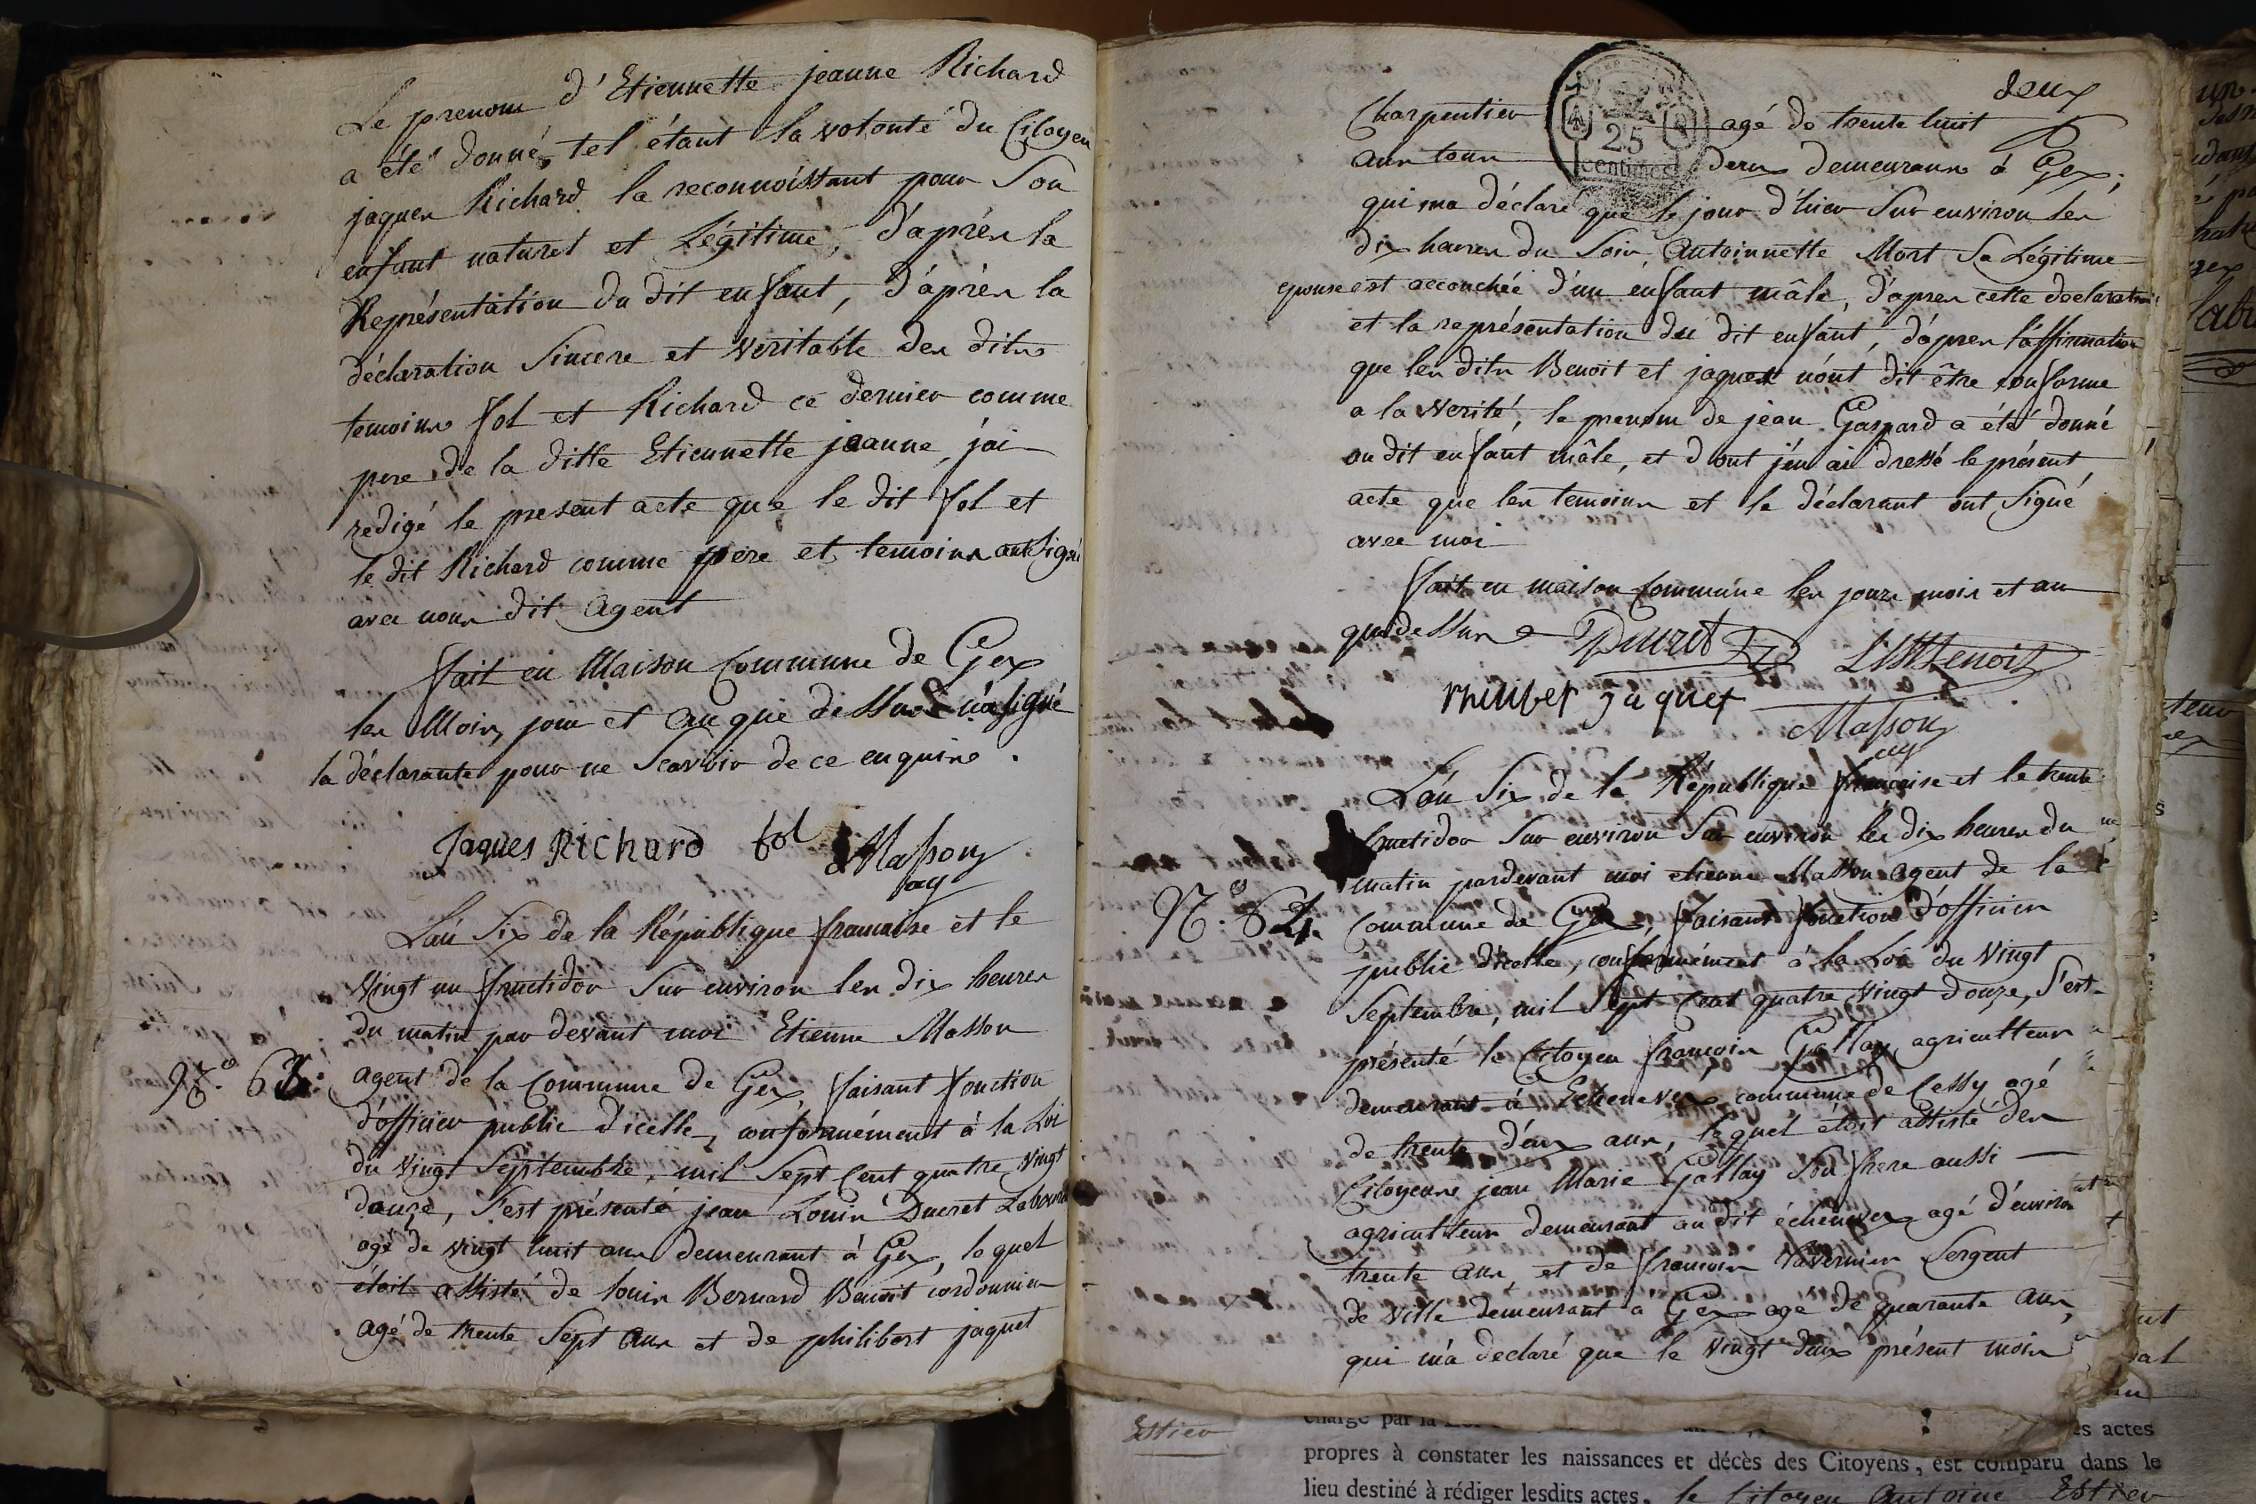 Le prenom d'Etiennette jeanne Richard
a été donné, tel étant la volonté du Citoyen
jaques Richard la reconnoissant pour Son
enfant naturel et Légitime, d'aprés la
Représentation du dit enfant, d'aprés la
déclaration Sincere et veritable des dits
temoins fol et Richard ce dernier comme
pere de la ditte Etiennette jeanne, j'ai
redigé le present acte que le dit fol et
le dit Richard comme pere et temoins ont Signé
avec nous dit Agent
fait en Maison Commune de Gex
les Mois, jour et an que dessus n'a signé
la déclarante pour ne Scavoir de ce enquise.
Jaques Richard fol Masson
ag
L'an Six de la République francaise et le
Vingt un fructidor Sur environ les dix heures
du matin par devant moi Etienne Masson
N.º 63. agent de la Commune de Gex faisant fonction
d'officier public d'icelle, conformément à la Loi
du vingt Septembre, mil Sept Cent quatre vingt
douze, S'est présenté jean Louis Ducret
agé de vingt huit ans demeurant à Gex, lequel
étoit assisté de louis Bernard Benoit cordonnier
agé de trente Sept ans et de philibert jaquet
deux
25
centimes
Charpentier agé de trente huit
ans tous deux demeurans à Gex,
qui ma déclaré que le jour d'hier Sur environ les
dix heures du Soir, Antoinnette Mort Sa Légitime
epouse est accouchée d'un enfant mâle, d'apres cette declaration
et la représentation du dit enfant, d'apres l'affirmation
que les dits Benoit et jaquet m'ont dit être conforme
a la verité, le prenom de jean Gaspard a été donné
au dit enfant mâle, et dont j'en ai dressé le présent
acte que les temoins et le déclarant ont Signé
avec moi
fait en maison Commune les jours mois et an
que dessus Ducret L B Benoit
jaquet
Masson
ag
L'an Six de la République francaise et le trente
fructidor Sur environ Sur environ les dix heures du
matin pardevant moi etienne Masson agent de la
N.º 64. Commune de Gex, faisant fonction d'officier
public d'icelle, conformément à la Loi du Vingt
Septembre, mil Sept Cent quatre Vingt douze, S'est
présenté le Citoyen françois Gallay agriculteur
demeurant à Echenevex commune de Cessy agé
de trente deux ans, lequel étoit assisté des
Citoyens jean Marie Gallay Son frere aussi
agriculteur demeurant au dit échenevex agé d'environ
trente ans, et de françois Tavernier Sergent
de Ville demeurant a Gex age de quarante ans,
qui m'a declaré que le vingt deux présent mois
Estier
propres à constater les naissances et décès des Citoyens, est comparu dans le
lieu destiné à rédiger lesdits actes, le Citoyen Antoine Estier